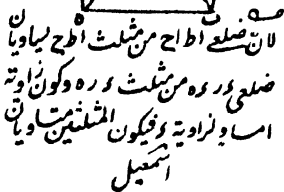 لان ضلعی اط اح من مثلث اطح لیساویان
ضلعی ءر ءه من مثلث ءره وکون زاویة
امساو لزاویة ء فیکون المثلثین متساویان
اسمعیل